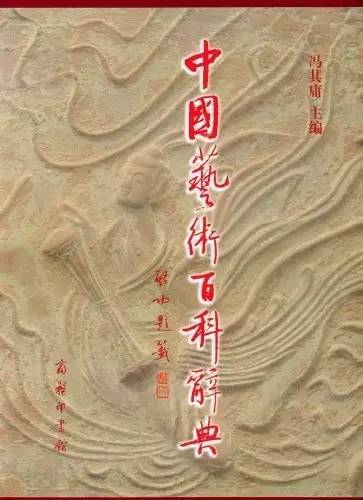 冯其庸 主编
中國藝術百科辭典
啓功題籤
商務印書館